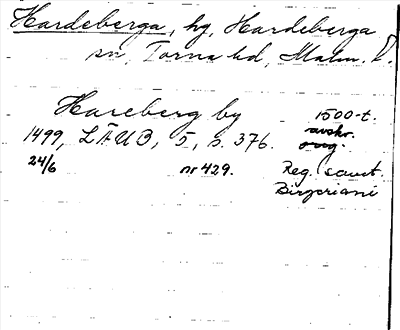 Hardeberga, by, Hardeberga
sn, Torna hd, Malm. l.
Hareberg by 1500-t.
1499, LÄUB, 5, s. 376. avskr.
orig.
24/6 nr 429. Reg. sanct.
Birgeriani